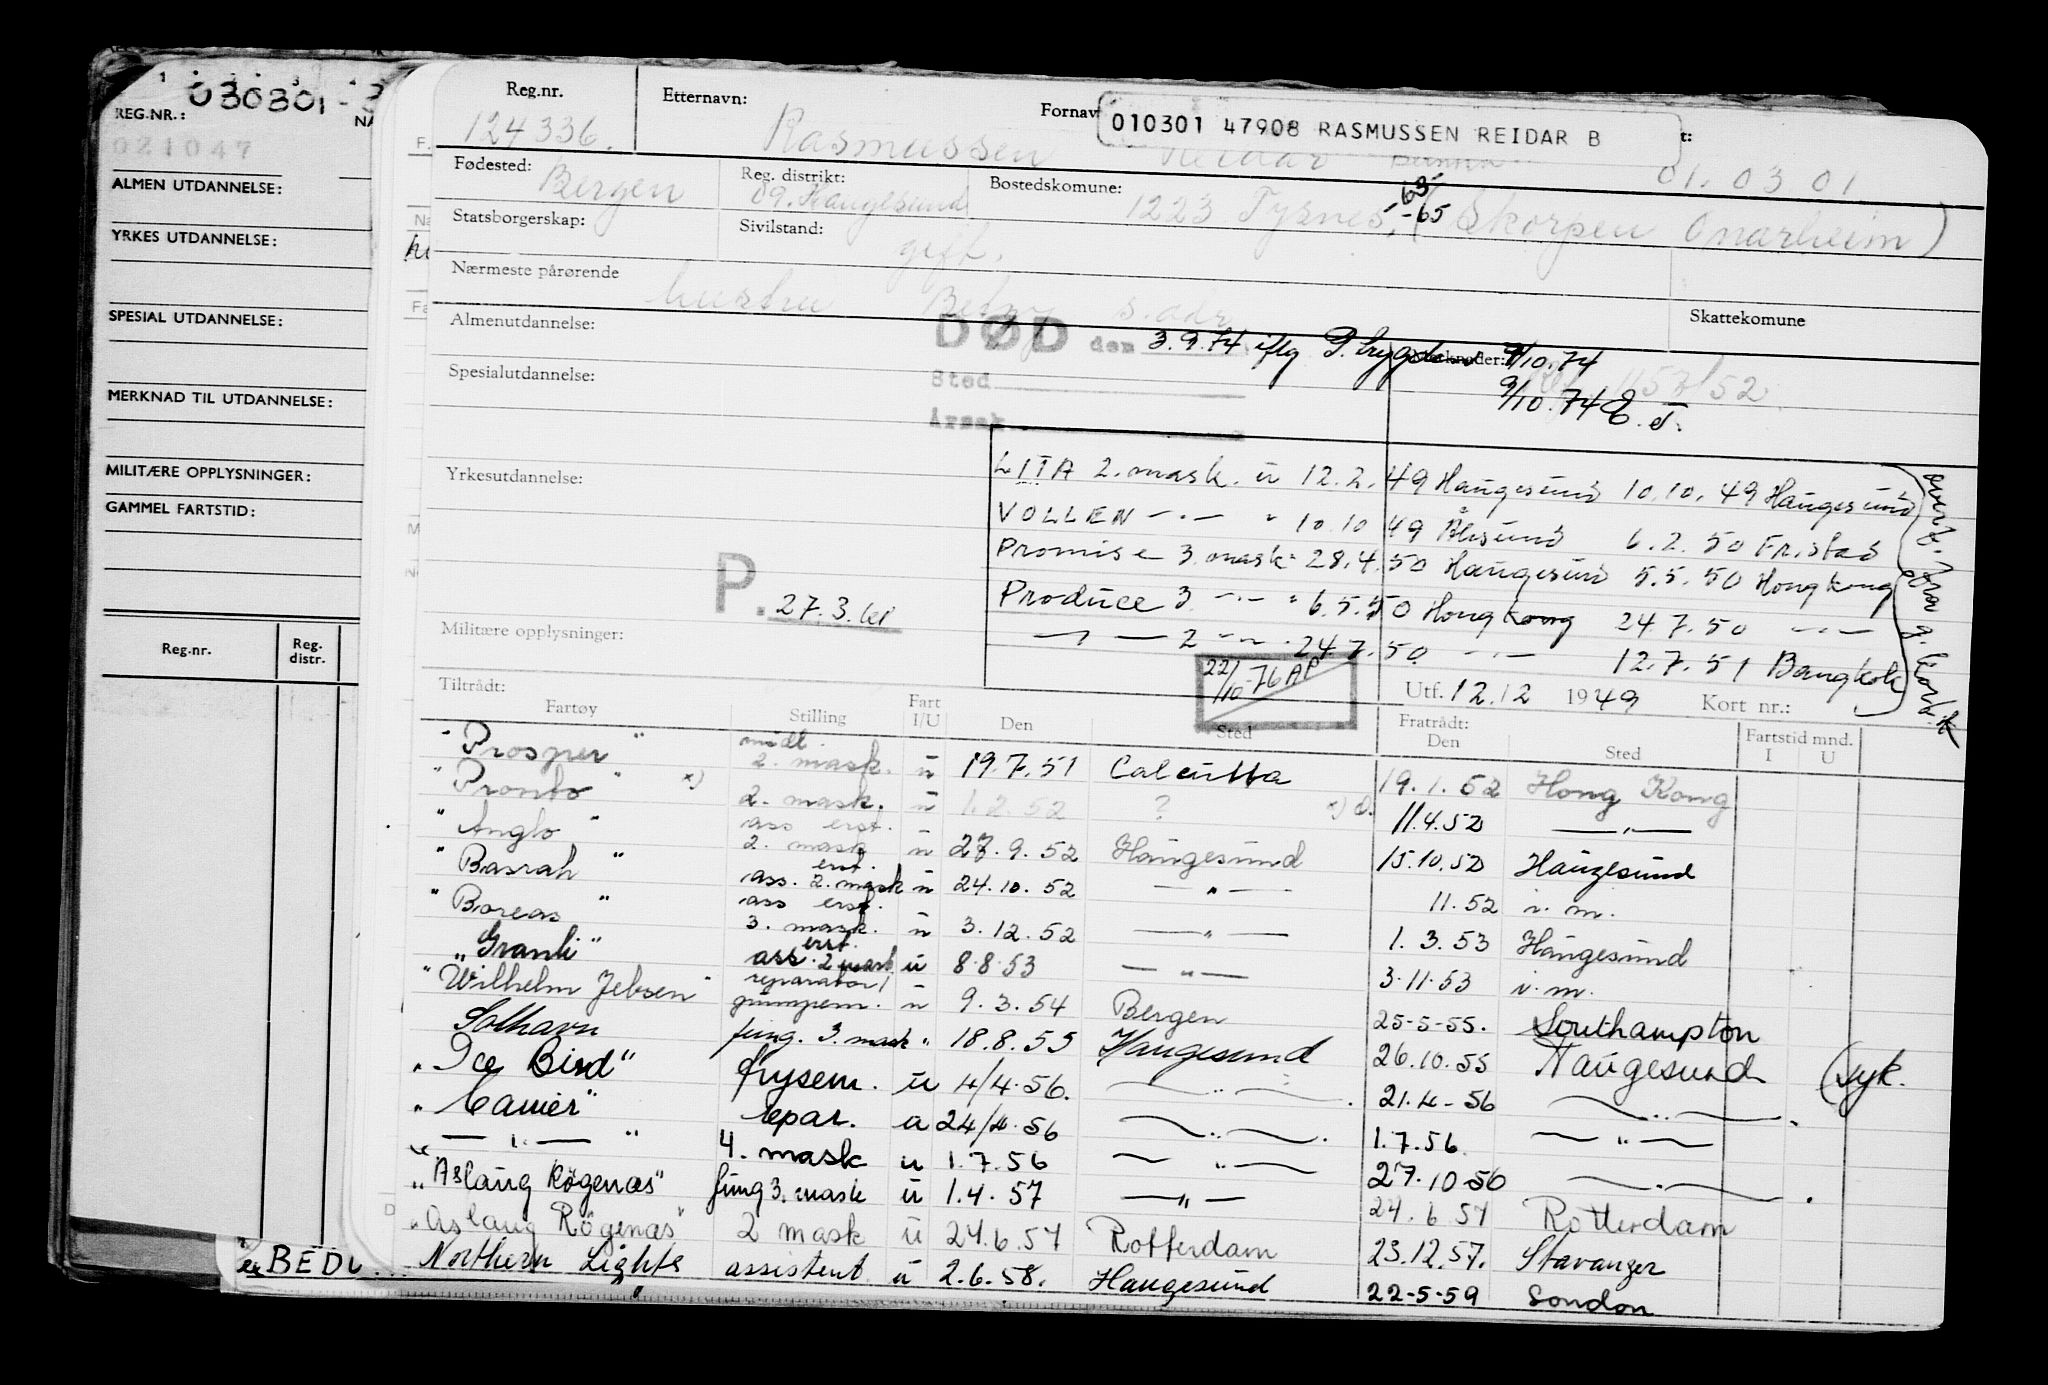 REG.NR.: 030301 - 3
NA
021047
ALMEN UTDANNELSE:
YRKES UTDANNELSE:
SPESIAL UTDANNELSE:
MERKNAD TIL UTDANNELSE:
MILITÆRE OPPLYSNINGER:
GAMMEL FARTSTID:
Reg.nr. Reg. distr.
BEDU
Reg.nr. Etternavn: Fornav
010301 47908 RASMUSSEN REIDAR B
124336. Rasmussen Reidar 01.03 01
Fødested: Bergen Reg. distrikt: 09. Haugesund Bostedskomune: 1223 Tysnes, (Skorpen Onarheim)
63-
-65
Statsborgerskap: Sivilstand: gift.
Nærmeste pårørende hustru Betzy s. adr
Skattekomune
Almenutdannelse:
DØD den 3.9.74 iflg 9/10.74
Spesialutdannelse:
Sted
9/10.74
Årsak
Yrkesutdannelse:
LITA 2. mask. u 12.2.49 Haugesund 10.10.49 Haugesund
VOLLEN -"- " 10.10 49 Ålesund 6.2.50 Fr.stad
Promise 3. mask " 28.4.50 Haugesund 5.5.50 Hongkong
Produce 3. -"- " 6.5.50 Hongkong 24.7.50 -"-
-"- 2 -"- " 24.7.50 -"- 12.7.51 Bangkok
P. 27.3.61
Militære opplysninger:
22/10-76 AP
Utf. 12.12 1949 Kort nr.:
Tiltrådt: Fratrådt:
Fartøy Stilling Fart I/U Den Sted Den Sted Fartstid mnd. I U
"Prosper" midl. 2. mask. u 19.7.51 Calcutta 19.1.52 Hong Kong
"Pronto" x) 2. mask. u 1.2.52 ? 11.4.52 -"-
"Anglo" ass erst. 2. mask u 27.9.52 Haugesund 15.10.52 Haugesund
"Basrah" erst. ass. 2. mask u 24.10.52 -"- 11.52 i.m.
"Boreas" ass erst. 3. mask. u 3.12.52 -"- 1.3.53 Haugesund
"Granli" erst. ass. 2 mask u 8.8.53 -"- 3.11.53 i.m.
"Wilhelm Jebsen" reparatør/ pumpem. u 9.3.54 Bergen 25-5-55. Southampton
Solhavn fung. 3. mask " 18.8.55 Haugesund 26.10.55 Haugesund (syk.
"Ice Bird" frysem. u 4/4.56. -"- 21.4-56 -"-
" repar. u 24/4.56 -"- 1.7.56. -"-
-"- 4. mask u 1.7.56 -"- 27.10-56 -"-
"Aslaug Rögenæs" fung 3. mask u 1.4.57 -"- 24.6.57 Rotterdam
"Aslaug Rögenæs" 2 mask u 24.6.57 Rotterdam 23.12.57. Stavanger
Northern Lights assistent u 2.6.58. Haugesund 22-5-59 London